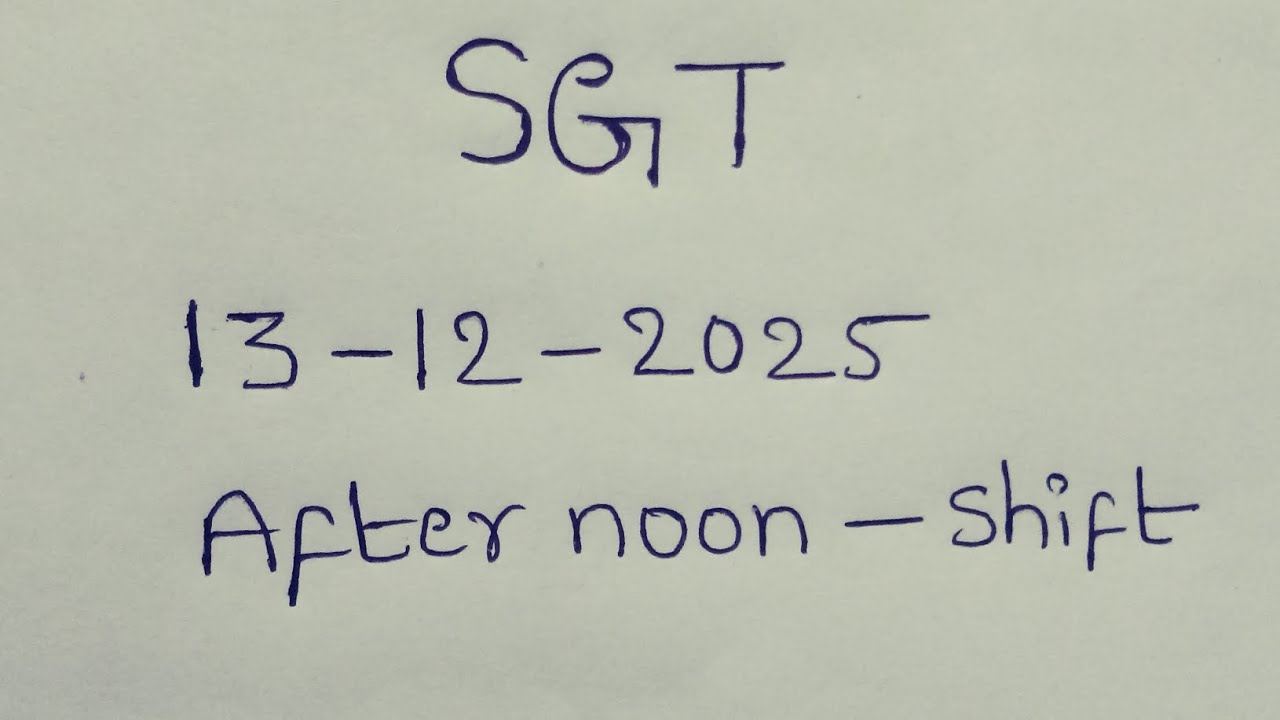 SGT
13-12-2025
After noon - shift